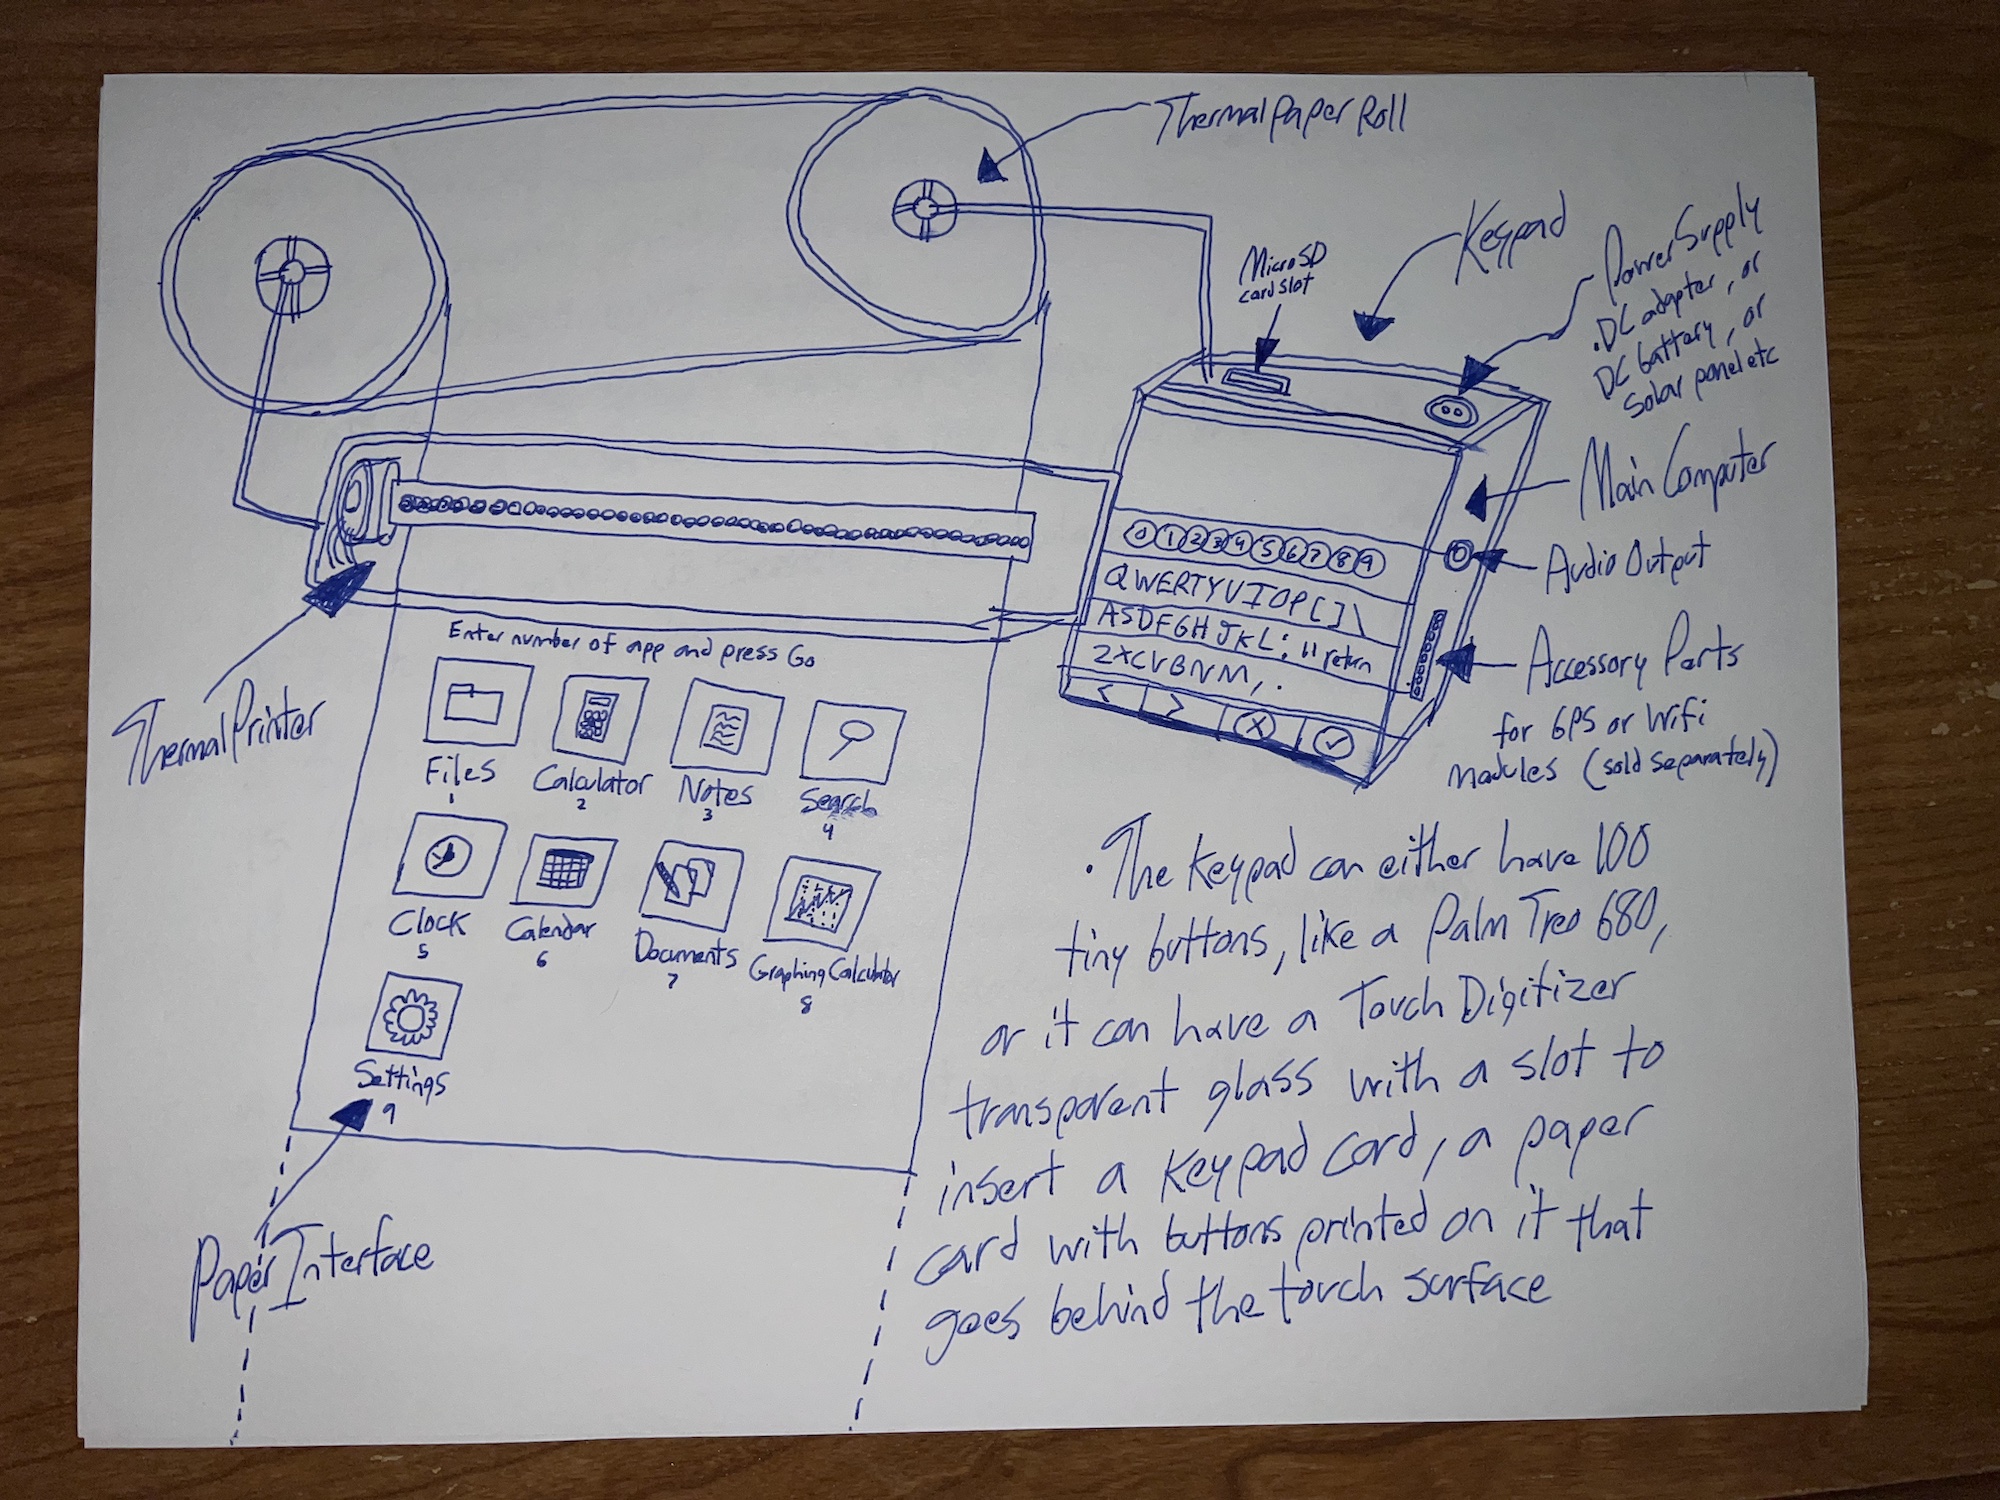 Thermal Paper Roll
Keypad
MicroSD
card slot
Power Supply
. DC adapter, or
DC battery, or
Solar panel etc
Main Computer
Audio Output
Accessory Parts
for GPS or Wifi
modules (sold separately)
0 1 2 3 4 5 6 7 8 9
QWERTYUIOP[]\
ASDFGHJKL;" return
ZXCVBNM,.
< > X ✓
Thermal Printer
Enter number of app and press Go
Files
1
Calculator
2
Notes
3
Search
4
Clock
5
Calendar
6
Documents
7
Graphing Calculator
8
Settings
9
Paper Interface
. The keypad can either have 100
tiny buttons, like a Palm Treo 680,
or it can have a Touch Digitizer
transparent glass with a slot to
insert a keypad card, a paper
card with buttons printed on it that
goes behind the touch surface